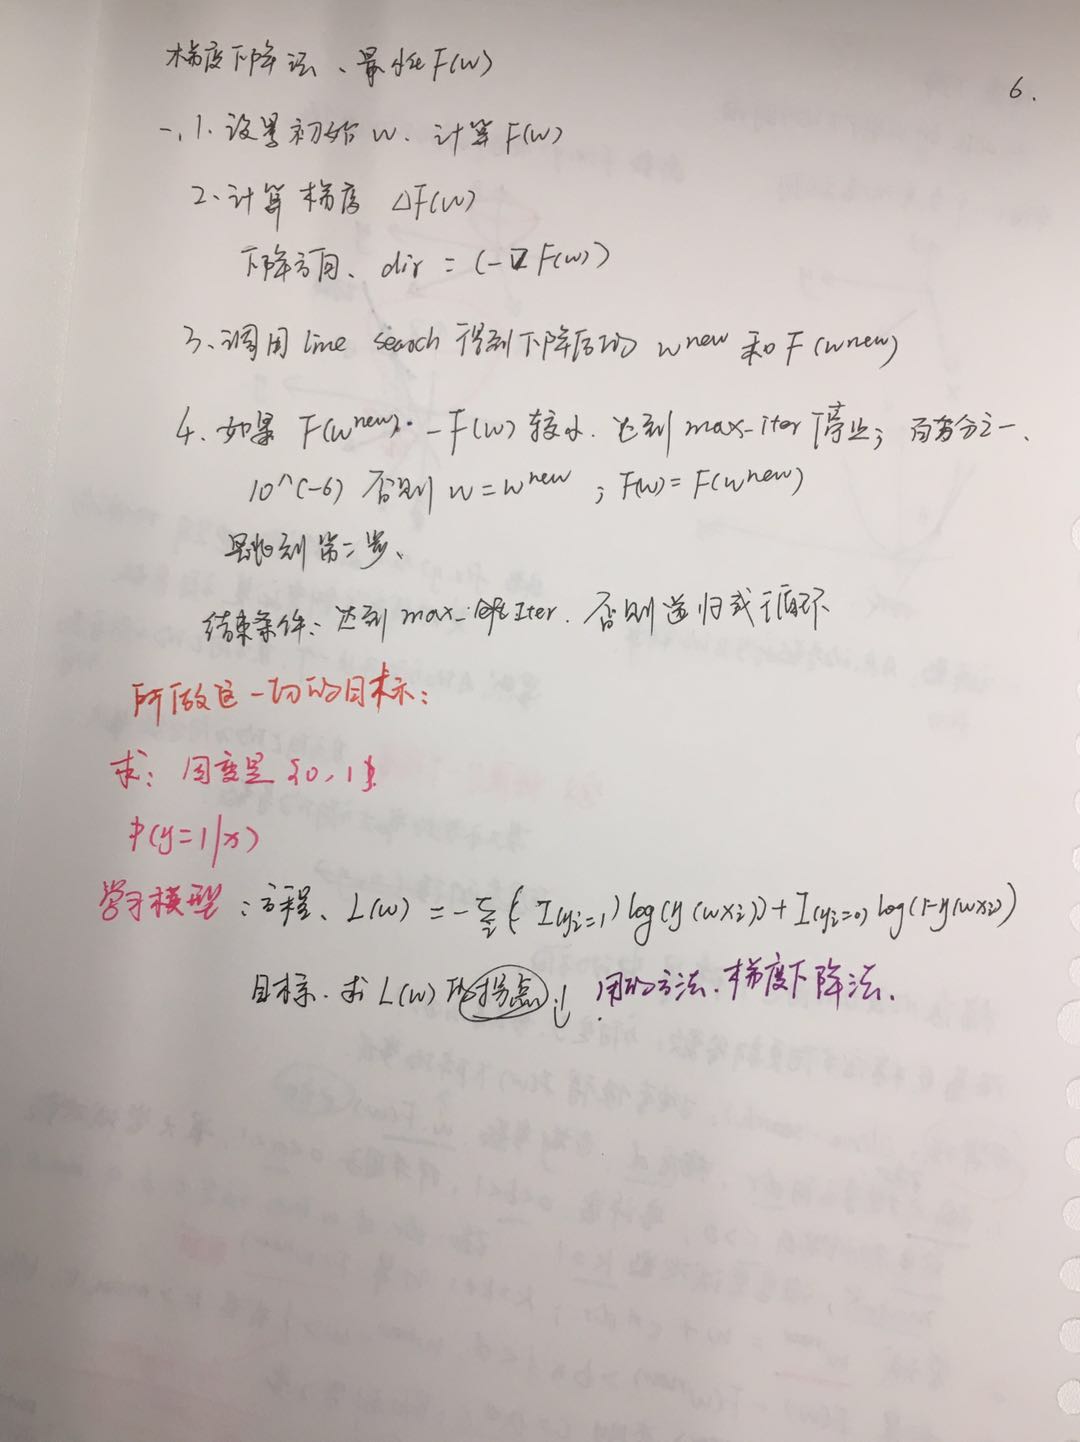 6.
梯度下降法、最小化F(w)
一、1. 设置初始w. 计算F(w)
2. 计算梯度 △F(w)
下降方向、dir = (-∇F(w))
3. 调用line search 得到下降后的 w^new 和 F(w^new)
4. 如果 F(w^new) - F(w) 较小. 达到max-iter 停止; 百万分之一、
10^(-6) 否则 w = w^new ; F(w) = F(w^new)
跳到第二步、
结束条件: 达到 max- Iter. 否则递归或循环
所做这一切的目标:
求: 因变量 {0, 1}
P(y=1|x)
学习模型: 方程、L(w) = -Σi ( I(yi=1) log(y(wxi)) + I(yi=0) log(1-y(wxi))
目标. 求L(w)的拐点. 用的方法. 梯度下降法.